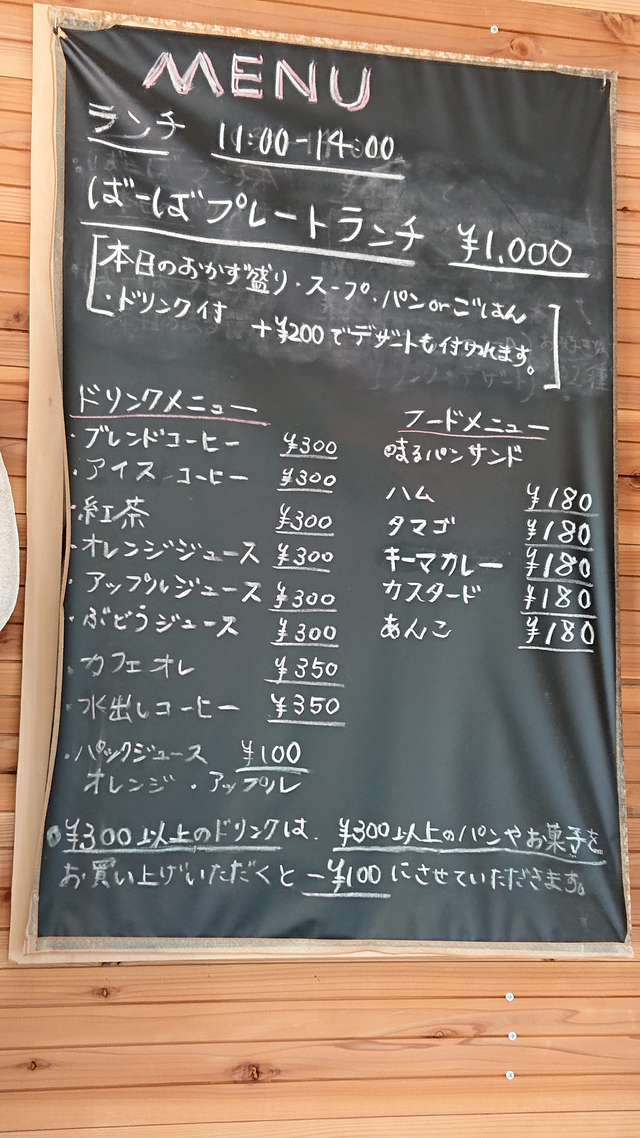 MENU
ランチ 11:00-14:00
ばーばプレートランチ ¥1,000
本日のおかず盛り・スープ・パンorごはん
・ドリンク付 +¥200でデザートも付けれます。
ドリンクメニュー
・ブレンドコーヒー ¥300
・アイスコーヒー ¥300
・紅茶 ¥300
・オレンジジュース ¥300
・アップルジュース ¥300
・ぶどうジュース ¥300
・カフェオレ ¥350
・水出しコーヒー ¥350
・パックジュース ¥100
オレンジ・アップル
フードメニュー
まるパンサンド
ハム ¥180
タマゴ ¥180
キーマカレー ¥180
カスタード ¥180
あんこ ¥180
¥300以上のドリンクは、¥300以上のパンやお菓子を
お買い上げいただくと -¥100 にさせていただきます。